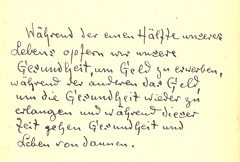 Während der einen Hälfte unseres
Lebens opfern wir unsere
Gesundheit, um Geld zu erwerben,
während der anderen das Geld
um die Gesundheit wieder zu
erlangen und während dieser
Zeit gehen Gesundheit und
Leben von dannen.